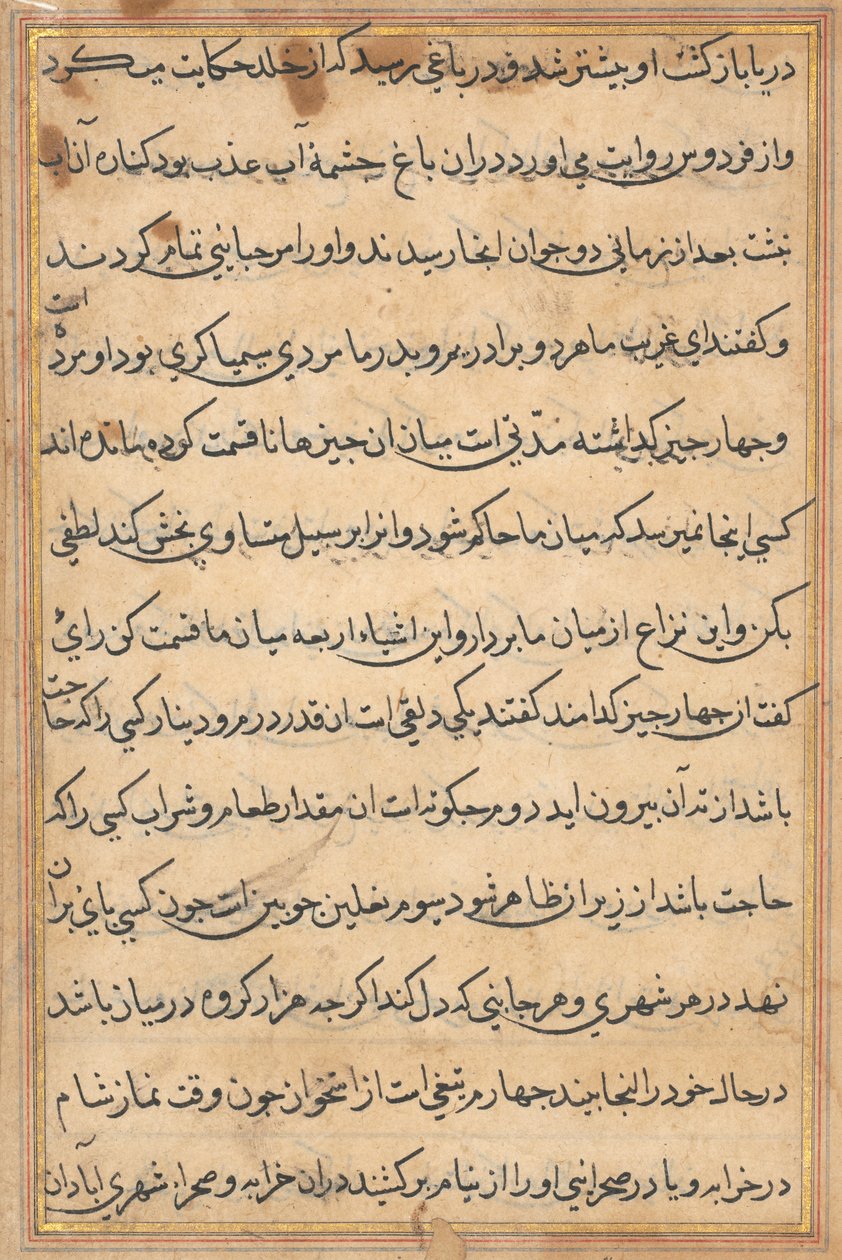 دریا باز کشت او بیشتر شد و در باغي رسید که از خلد حکایت میکرد
و از فردوس روایت مي اورد دران باغ چشمهٔ آب عذب بود کناره آن اب
نشت بعد از زماني دو جوان انجا رسیدند و او را مرحبایئي تمام کردند
و کفتند اي غریب ما هر دو برادریم و پدر ما مردي سیمیا کري بود او مرده است
و جهار جیز کداشته مدّتي است میان ان جیزها نا قسمت کرده مانده اند
کسي اینجا نمیرسد که میان ما حاکم شود و انرا بر سبیل متساوي بخش کند لطفي
بکن و این نزاع از میان ما بردار و این اشیاء اربعه میان ما قسمت کن رایٔ
کفت از جهار جیز کدامند کفتند یکي دلقي است ان قدر درم و دینار کسي را که حاجت
باشد از ته آن بیرون اید دوم جکوته است ان مقدار طعام و شراب کسي را که
حاجت باشد از زیر ان ظاهر شود سیوم نعلین جوبین است جون کسي پایٔ بران
نهد در هر شهري و هر جایئي که دل کند اکر جه هزار کروه در میان باشد
در حال خود را انجا بیند جهارم تیغي است از استخوان جون وقت نماز شام
در خرابه و یا در صحرایئي او را از نیام بر کشند دران خرابه و صحراء شهري آبادان